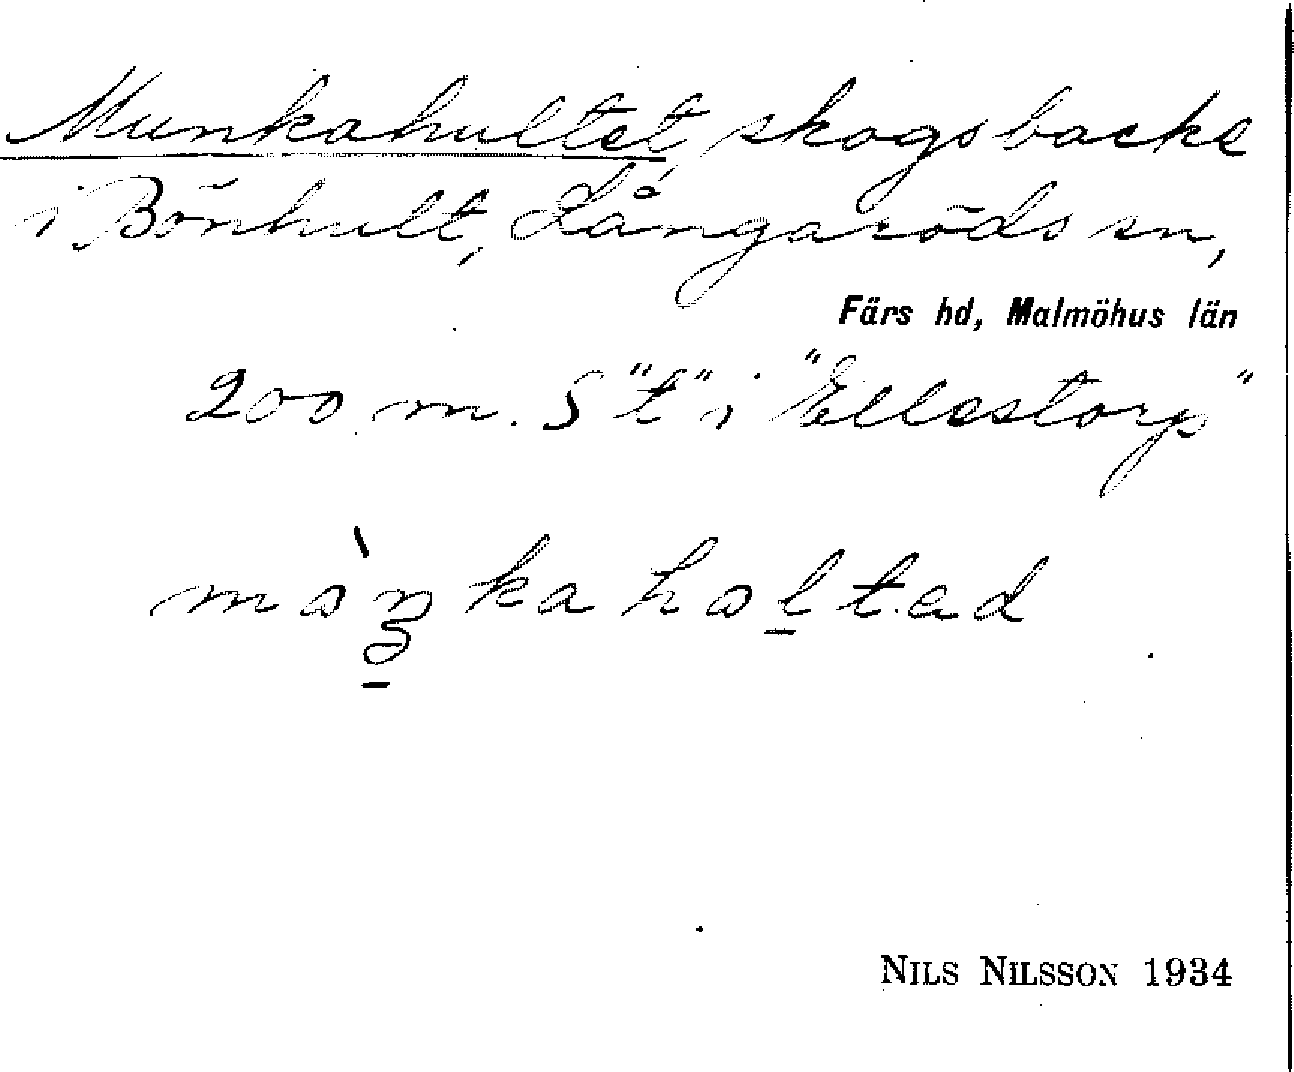 Munkahultet, skogsbacke
i Bönhult, Långaröds sn,
Färs hd, Malmöhus län
200 m. S "t" i "Ellestorp"
NILS NILSSON 1934